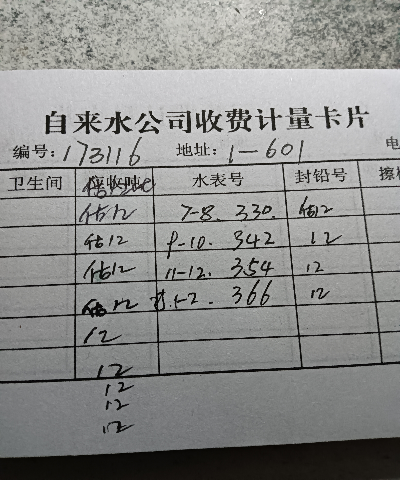 自来水公司收费计量卡片
编号: 173116 地址: 1-601 电
卫生间 水表号 封铅号 擦
估12 7-8. 330. 估12
估12 9-10. 342 12
估12 11-12. 354 12
估12 1-2. 366 12
12
12
12
12
12